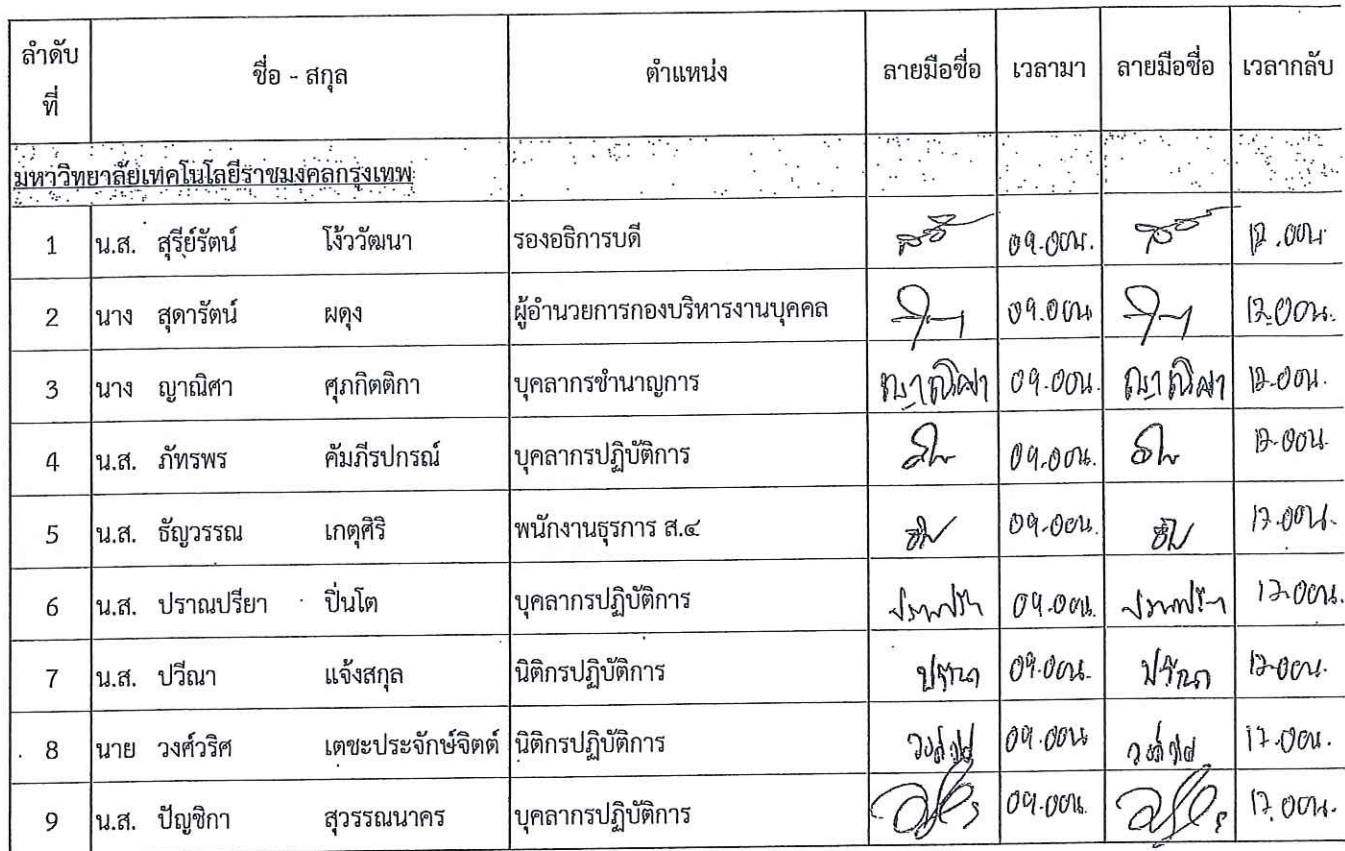 ลำดับที่ ชื่อ - สกุล ตำแหน่ง ลายมือชื่อ เวลามา ลายมือชื่อ เวลากลับ
มหาวิทยาลัยเทคโนโลยีราชมงคลกรุงเทพ
1 น.ส. สุรีย์รัตน์ โง้ววัฒนา รองอธิการบดี 09.00น.
2 นาง สุดารัตน์ ผดุง ผู้อำนวยการกองบริหารงานบุคคล 09.00น.
3 นาง ญาณิศา ศุภกิตติกา บุคลากรชำนาญการ ญาณิศา 09.00น. ญาณิศา
4 น.ส. ภัทรพร คัมภีรปกรณ์ บุคลากรปฏิบัติการ 09.00น.
5 น.ส. ธัญวรรณ เกตุศิริ พนักงานธุรการ ส.๔ 09.00น.
6 น.ส. ปราณปรียา ปิ่นโต บุคลากรปฏิบัติการ 09.00น.
7 น.ส. ปวีณา แจ้งสกุล นิติกรปฏิบัติการ ปวีณา 09.00น. ปวีณา
8 นาย วงศ์วริศ เตชะประจักษ์จิตต์ นิติกรปฏิบัติการ 09.00น.
9 น.ส. ปัญชิกา สุวรรณนาคร บุคลากรปฏิบัติการ 09.00น.